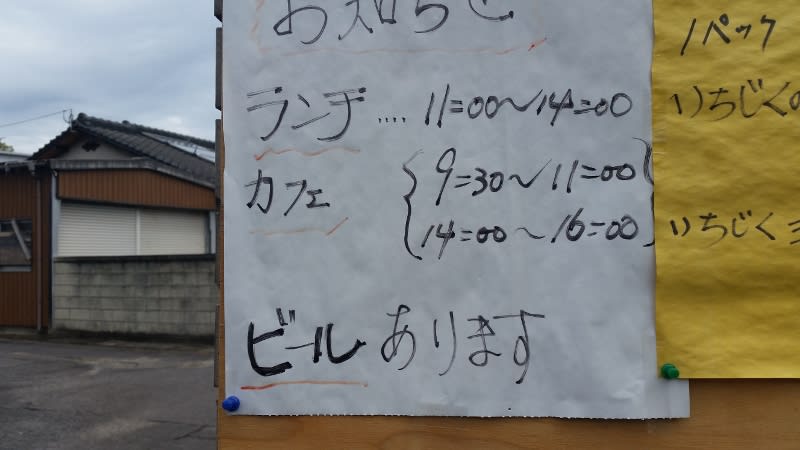 お知らせ
ランチ.... 11=00〜14=00
カフェ 9=30〜11=00
14=00〜16=00
ビールあります
1パック
いちじくの
いちじく